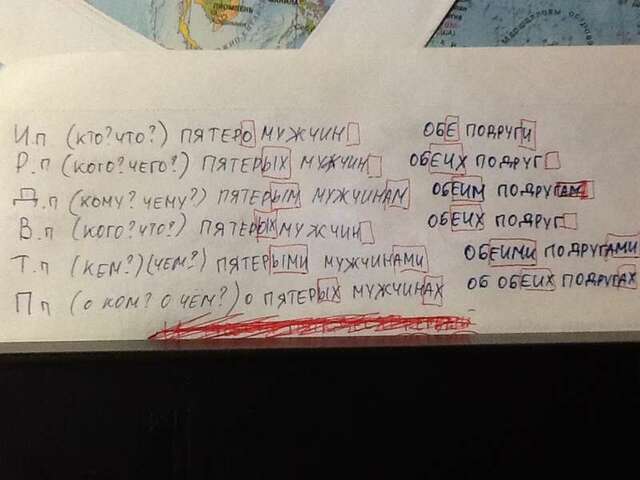 И.п (кто?что?) ПЯТЕРО МУЖЧИН ОБЕ ПОДРУГИ
Р.п (кого?чего?) ПЯТЕРЫХ МУЖЧИН ОБЕИХ ПОДРУГ
Д.п (кому? чему?) ПЯТЕРЫМ МУЖЧИНАМ ОБЕИМ ПОДРУГАМ
В.п (кого?что?) ПЯТЕРЫХ МУЖЧИН ОБЕИХ ПОДРУГ
Т.п (кем?)(чем?) ПЯТЕРЫМИ МУЖЧИНАМИ ОБЕИМИ ПОДРУГАМИ
Пп (о ком? о чем?) О ПЯТЕРЫХ МУЖЧИНАХ ОБ ОБЕИХ ПОДРУГАХ